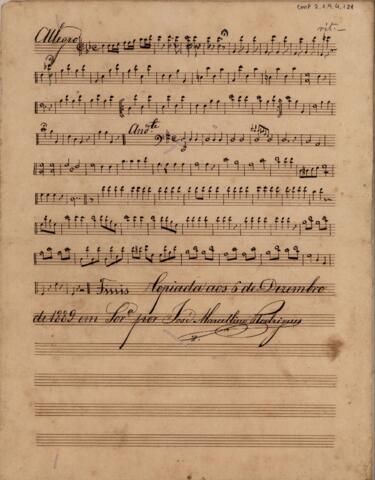 Com P 2.1.9.4.128
Allegro
rit.
And.te
Finis Copiada aos 5 de Dezembro
de 1889 em Sor.ª por José Marcellino Rodrigues